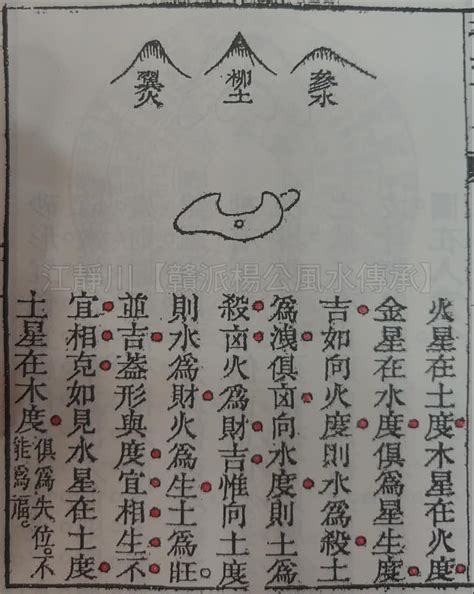 參水
柳土
翼火
火星在土度。木星在火度。
金星在水度。俱爲星生度。
吉。如向火度。則水爲殺。土
爲洩。俱凶。向水度。則土爲
殺。凶。火爲財。吉。惟向土度。
則水爲財。火爲生。土爲旺。
並吉。葢形與度。宜相生。不
宜相克。如見水星在土度。
土星在木度。俱爲失位。不
能爲福。
江靜川【贛派楊公風水傳承】